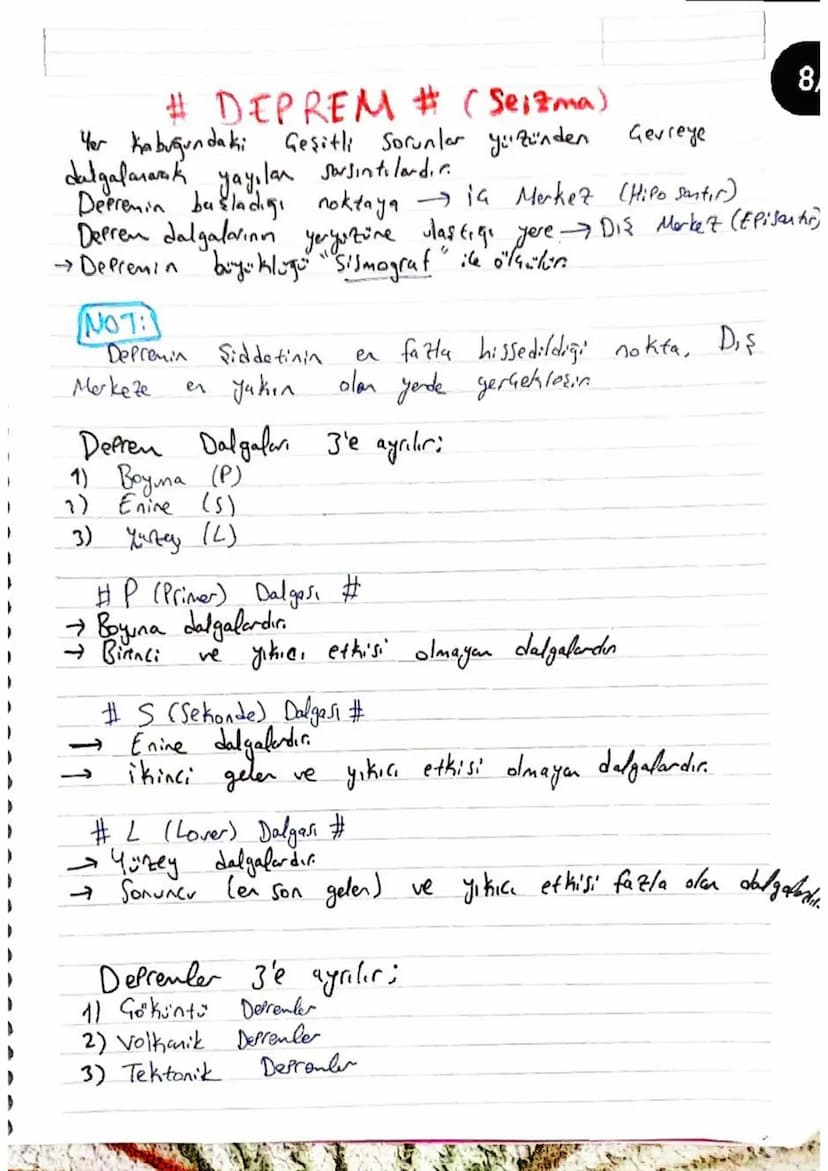 8/
# DEPREM # (Seizma)
Yer Kabuğundaki Çeşitli Sorunlar yüzünden Çevreye
dalgalanarak yayılan sarsıntılardır.
Depremin başladığı noktaya → iç Merkez (Hipo santır)
Deprem dalgalarının yeryüzüne ulaştığı yere → Dış Merkez (EPisantır)
→ Depremin büyüklüğü "Sismograf" ile ölçülür.
NOT:
Depremin Şiddetinin en fazla hissedildiği nokta, Dış
Merkeze en yakın olan yerde gerçekleşir.
Deprem Dalgaları 3'e ayrılır;
1) Boyuna (P)
2) Enine (S)
3) Yüzey (L)
# P (Primer) Dalgası #
→ Boyuna dalgalardır.
→ Birinci ve yıkıcı etkisi olmayan dalgalardır
# S (Sekonde) Dalgası #
→ Enine dalgalardır.
→ ikinci gelen ve yıkıcı etkisi olmayan dalgalardır.
# L (Lover) Dalgası #
→ Yüzey dalgalardır.
→ Sonuncu (en son gelen) ve yıkıcı etkisi fazla olan dalgalardır.
Depremler 3'e ayrılır;
1) Çöküntü Depremler
2) Volkanik Depremler
3) Tektonik Depremler